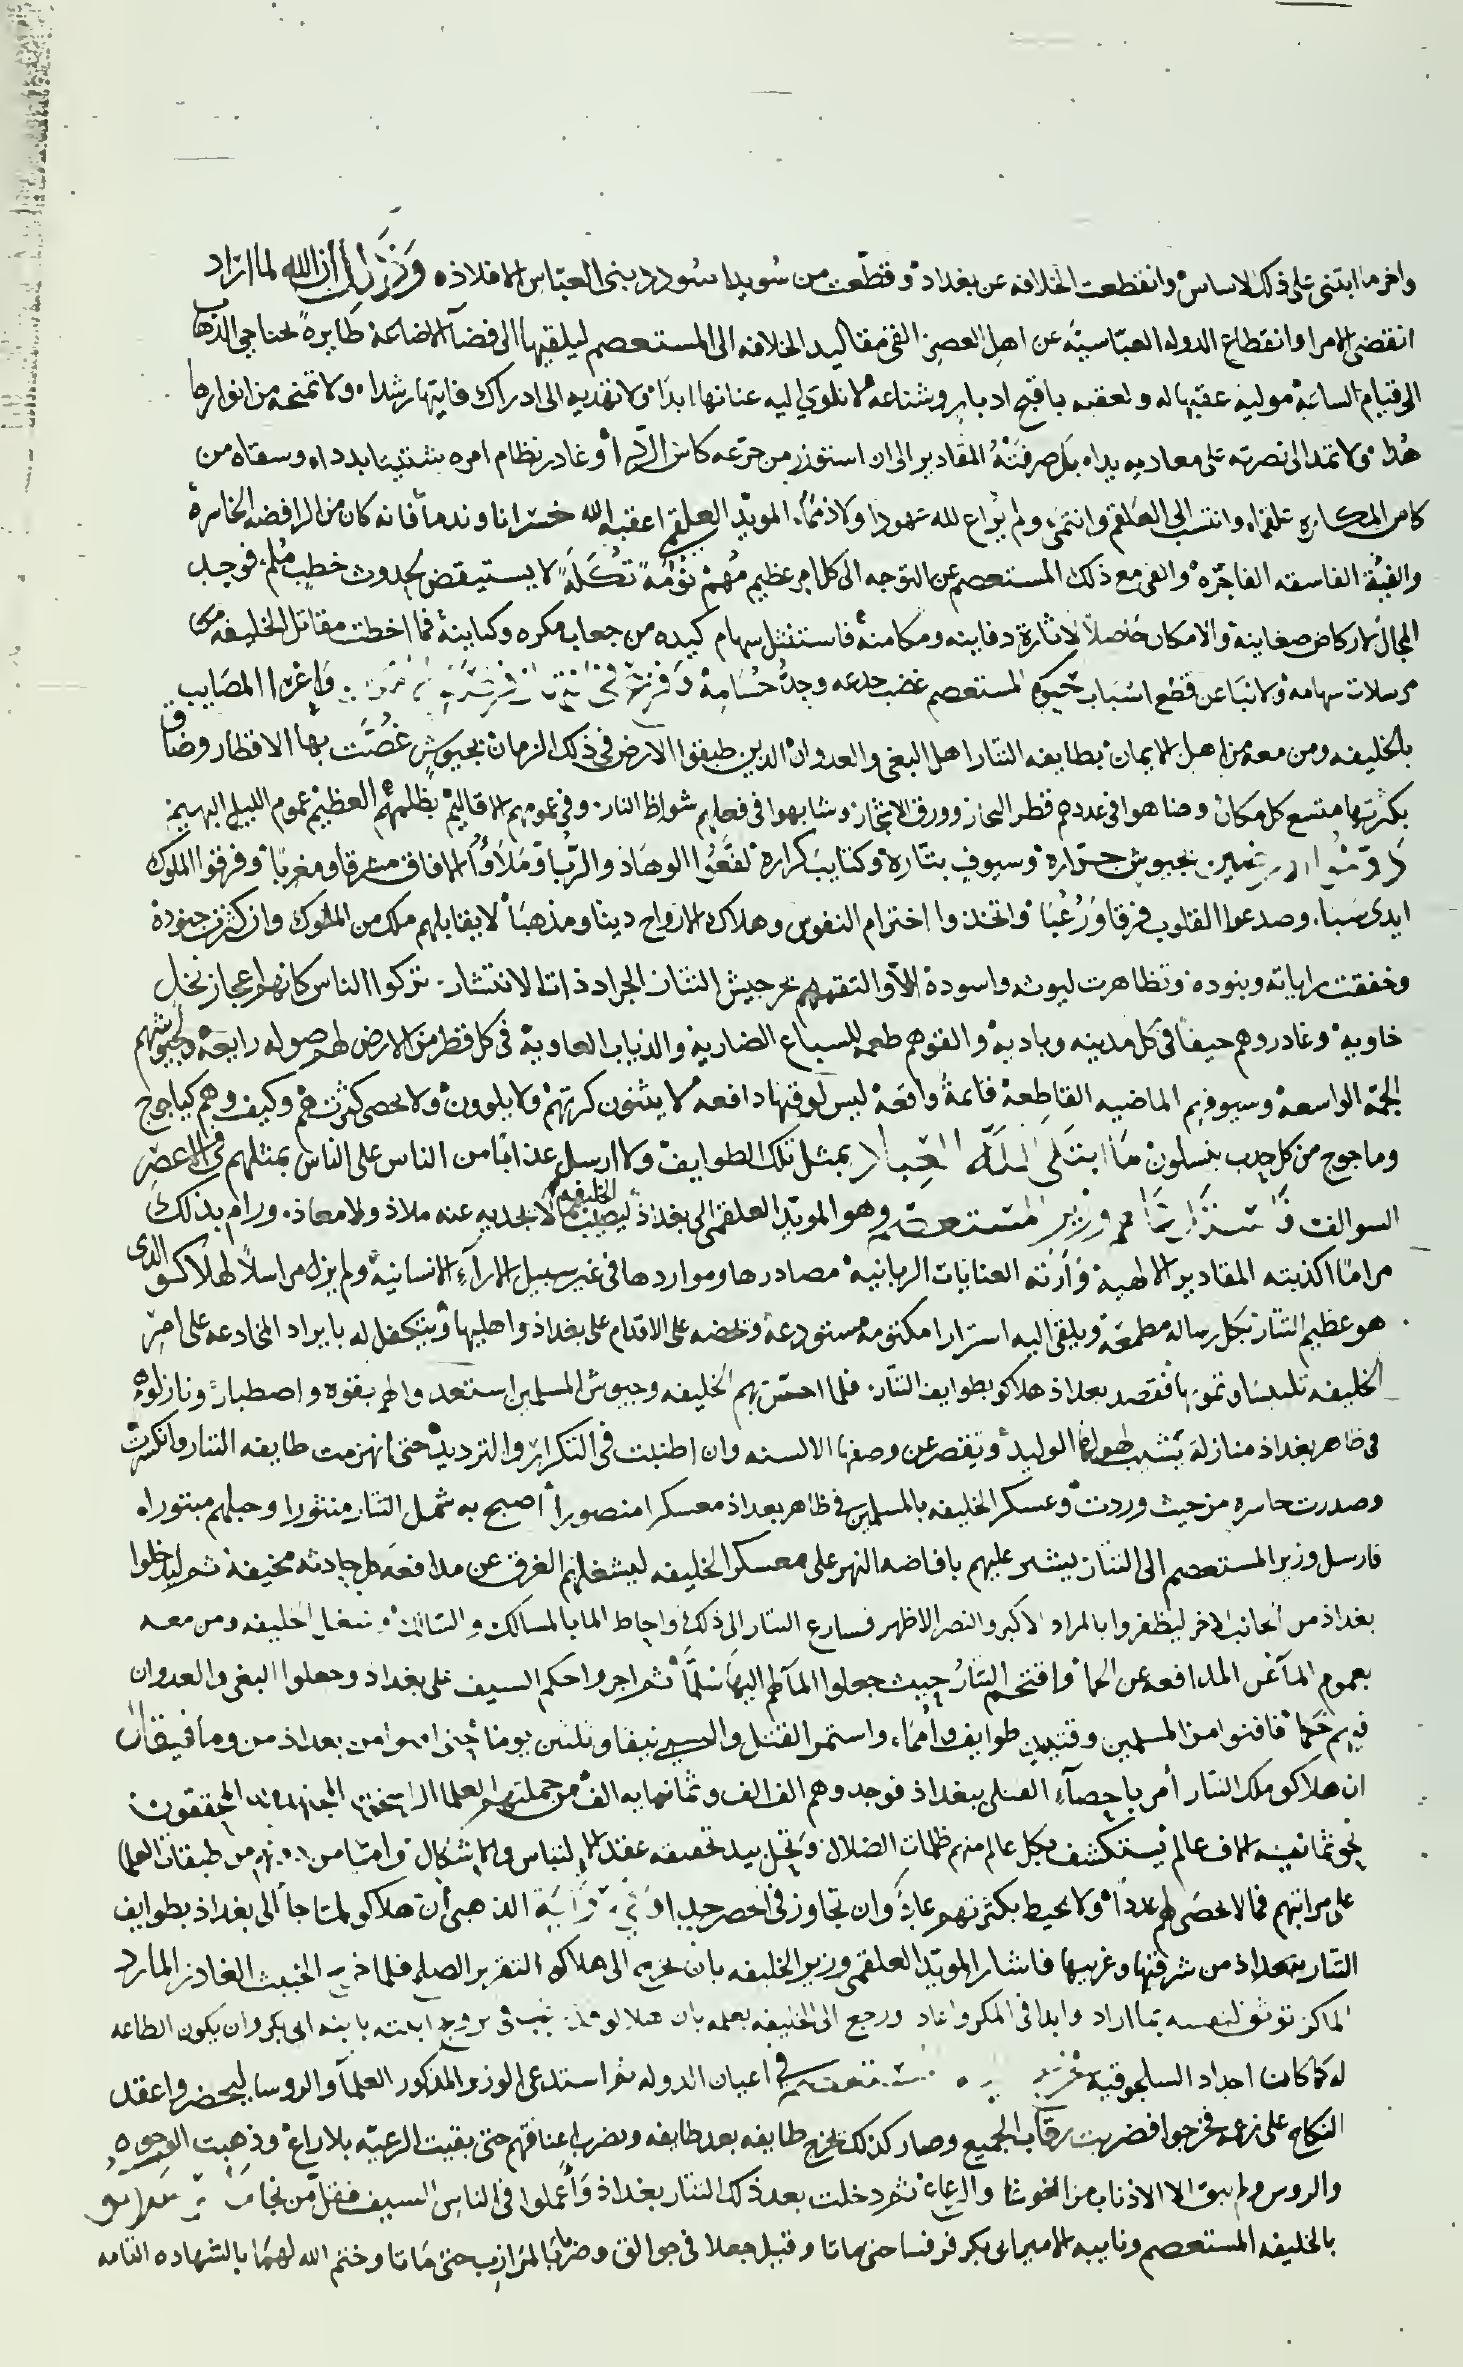 واخر ما ابتنى على ذلك الاساس وانقطعت الخلافه عن بغداد وقطعت من سويدا سودد بنى العباس الافلاذه وذلك أن الله لما اراد
انقضى الامرا وانقطاع الدوله العباسيه عن اهل العصر القى مقاليد الخلافه الى المستعصم ليلقيها الى فضآ الاضاعة طايرة بجناحي الذهاب
الى قيام الساعة مولية عقبها له ولعقبه باقبح ادبار وشناعه لا تلوي اليه عنانها ابدا ولا تهديه الى ادراك فايتها رشدا ولا تمنحه من انوارها
هدا ولا تمد الى نصرته على معاديه يدا بل صرفته المقادير الى ان استوزر من جرعه كاس الردا وغادر نظام امره شتيتا بددا وسقاه من
كاس المكاره علقما وانتسب الى العلقم وانتمى ولم يراع لله عهودا ولا ذمما المويد العلقمي اعقبه الله خسرانا وندما فانه كان من الرافضه الخاسرة
والفئة الفاسقه الفاجره والفى مع ذلك المستعصم عن التوجه الى كل امر عظيم مهم نؤمة تكلة لا يستيقض لحدوث خطب ملم فوجد
المجال لاركاض ضغاينه والامكان حاصلا لاثارة دفاينه ومكامنه فاستنثل سهام كيده من جعاب مكره وكناينه فما اخطت مقاتل الخليفه من
مرسلات سهامه ولا نبا عن قطع اسباب حيوة المستعصم غضب خدعه وحد حسامه واغرا المصايب
بالخليفه ومن معه من اهل الايمان بطايفه التتار اهل البغي والعدوان الذين طبقوا الارض في ذلك الزمان بجيوش غصت بها الاقطار وضاق
بكثرتها متسع كل مكان وضاهوا في عددهم قطر البحار وورق الاشجار وشابهوا في فعلهم شواظ النار وفي عمومهم الاقاليم بظلمهم العظيم عموم الليل البهيم
بجيوش جراره وسيوف بتاره وكتايب كراره لفعوا الوهاد والربا وملاوا الافاق مشرقا ومغربا وفرقوا الملوك
ايدى سبا وصدعوا القلوب فرقا ورعبا واتخذوا اخترام النفوس وهلاك الارواح دينا ومذهبا لا يقابلهم ملك من الملوك وان كثرت جنوده
وخفقت راياته وبنوده وتظاهرت ليوثه واسوده الا والتقمهم جيش التتار الجراد ذات الانتشار تركوا الناس كانهم اعجاز نخل
خاويه وغادروهم جيفا في كل مدينه وباديه والقوهم طعمة للسباع الضاريه والذياب العاويه في كل قطر من الارض لهم صوله رايعة ولجيوشهم
الجمة الواسعه وسيوفهم الماضيه القاطعه قائمة واقعة ليس لوقتها دافعه لا يثنون كرتهم ولا يلوون ولا تحصى كثرتهم وكيف وهم كياجوج
وماجوج من كل حدب ينسلون ما ابتلى الله العباد بمثل تلك الطوايف ولا ارسل عذابا من الناس على الناس بمثلهم في الاعصر
السوالف وزير المستعصم وهو المويد العلقمي الى بغداد ليصيب الخليفه لا يجد به عنه ملاذ ولا معاذ ورام بذلك
مراما اكذبته المقادير الالهية وارته العنايات الربانيه مصادرها ومواردها في غير سبيل الارآء الانسانيه ولم يزل مراسلا لهلاكو الذى
هو عظيم التتار بكل رساله مطمعة ويلقى اليه اسرارا مكتومة مستودعه وتحضه على الاقدام على بغداد واهليها ويتكفل له بايراد المخادعه على امر
الخليفه تلبيسا وتمويها فقصد بغداد هلاكو بطوايف التتار فلما احس بهم الخليفه وجيوش المسلمين استعدوا لهم بقوه واصطبار ونازلوه
في ظاهر بغداد منازلة يشيب لهولها الوليد وتقصر عن وصفها الالسنه وان اطنبت في التكرار والترديد حتى انهزمت طايفه التتار وانكسرت
وصدرت خاسره من حيث وردت وعسكر الخليفه بالمسلمين في ظاهر بغداد معسكرا منصورا أصبح به شمل التتار منثورا وحبلهم مبتورا
فارسل وزير المستعصم الى التتار يشير عليهم بافاضه النهر على معسكر الخليفه ليشغلهم الغرق عن مدافعة كل حادثه مخيفة ثم ليدخلوا
بغداد من الجانب الاخر ليظفروا بالمراد الاكبر والنصر الاظهر فسارع التتار الى ذلك واحاط الما بالمسالك والسالك وشغل الخليفه ومن معه
بعموم المآ عن المدافعه عن الحما واقتحم التتار حيث جعلوا المآ لهم اليها سلما ثم اجروا حكم السيف على بغداد وجعلوا البغي والعدوان
فيهم حكما فافنوا من المسلمين وقتيلين طوايف وامما واستمر القتل والسبي نيفا وثلثين يوما
ان هلاكو ملك التتار أمر باحصآء القتلى ببغداد فوجدوهم الف الف وثمانمايه الف من جملتهم العلما المحققون
نحو ثمانية الاف عالم يستكشف بكل عالم منهم ظلمات الضلال ويحل بيد تحقيقه عقد الالتباس والاشكال وامّا من دونهم من طبقات العلما
على مراتبهم فما لا تحصى لهم عددا ولا يحيط بكثرتهم عاد وان تجاوز في الحصر حدا وفي رواية الذهبي أن هلاكو لما جا ألى بغداد بطوايف
التتار ببغداد من شرقيها وغربيها فاشار المويد العلقمي وزير الخليفه بان يخرج الى هلاكو لتقرير الصلح فلما خرج الخبيث الغادر المارد
الماكر توثق لنفسه بما اراد وابدا في المكر واعاد ورجع الى الخليفه يعلمه بان هلاكو يرغب في تزويج ابنته بابنه ابى بكر وان يكون الطاعه
له كما كانت اجداد السلجوقية فخرج المستعصم في اعيان الدوله ثم استدعى الوزير المذكور العلمآ والروسا ليحضروا عقد
النكاح على زعمه فخرجوا فضربت رقاب الجميع وصار كذلك تخرج طايفه بعد طايفه وتضرب اعناقهم حتى بقيت الرعيه بلا راع وذهبت الوجوه
والروس ولم يبق الا الاذناب من الغوغا والرعاع ثم دخلت بعد ذلك التتار بغداد وأعملوا في الناس السيف فقل من نجا
بالخليفه المستعصم ونايبه الامير ابى بكر فرفسا حتى ماتا وقيل جعلا في جوالق وضربا بالمرازب حتى ماتا وختم الله لهما بالشهاده التامه